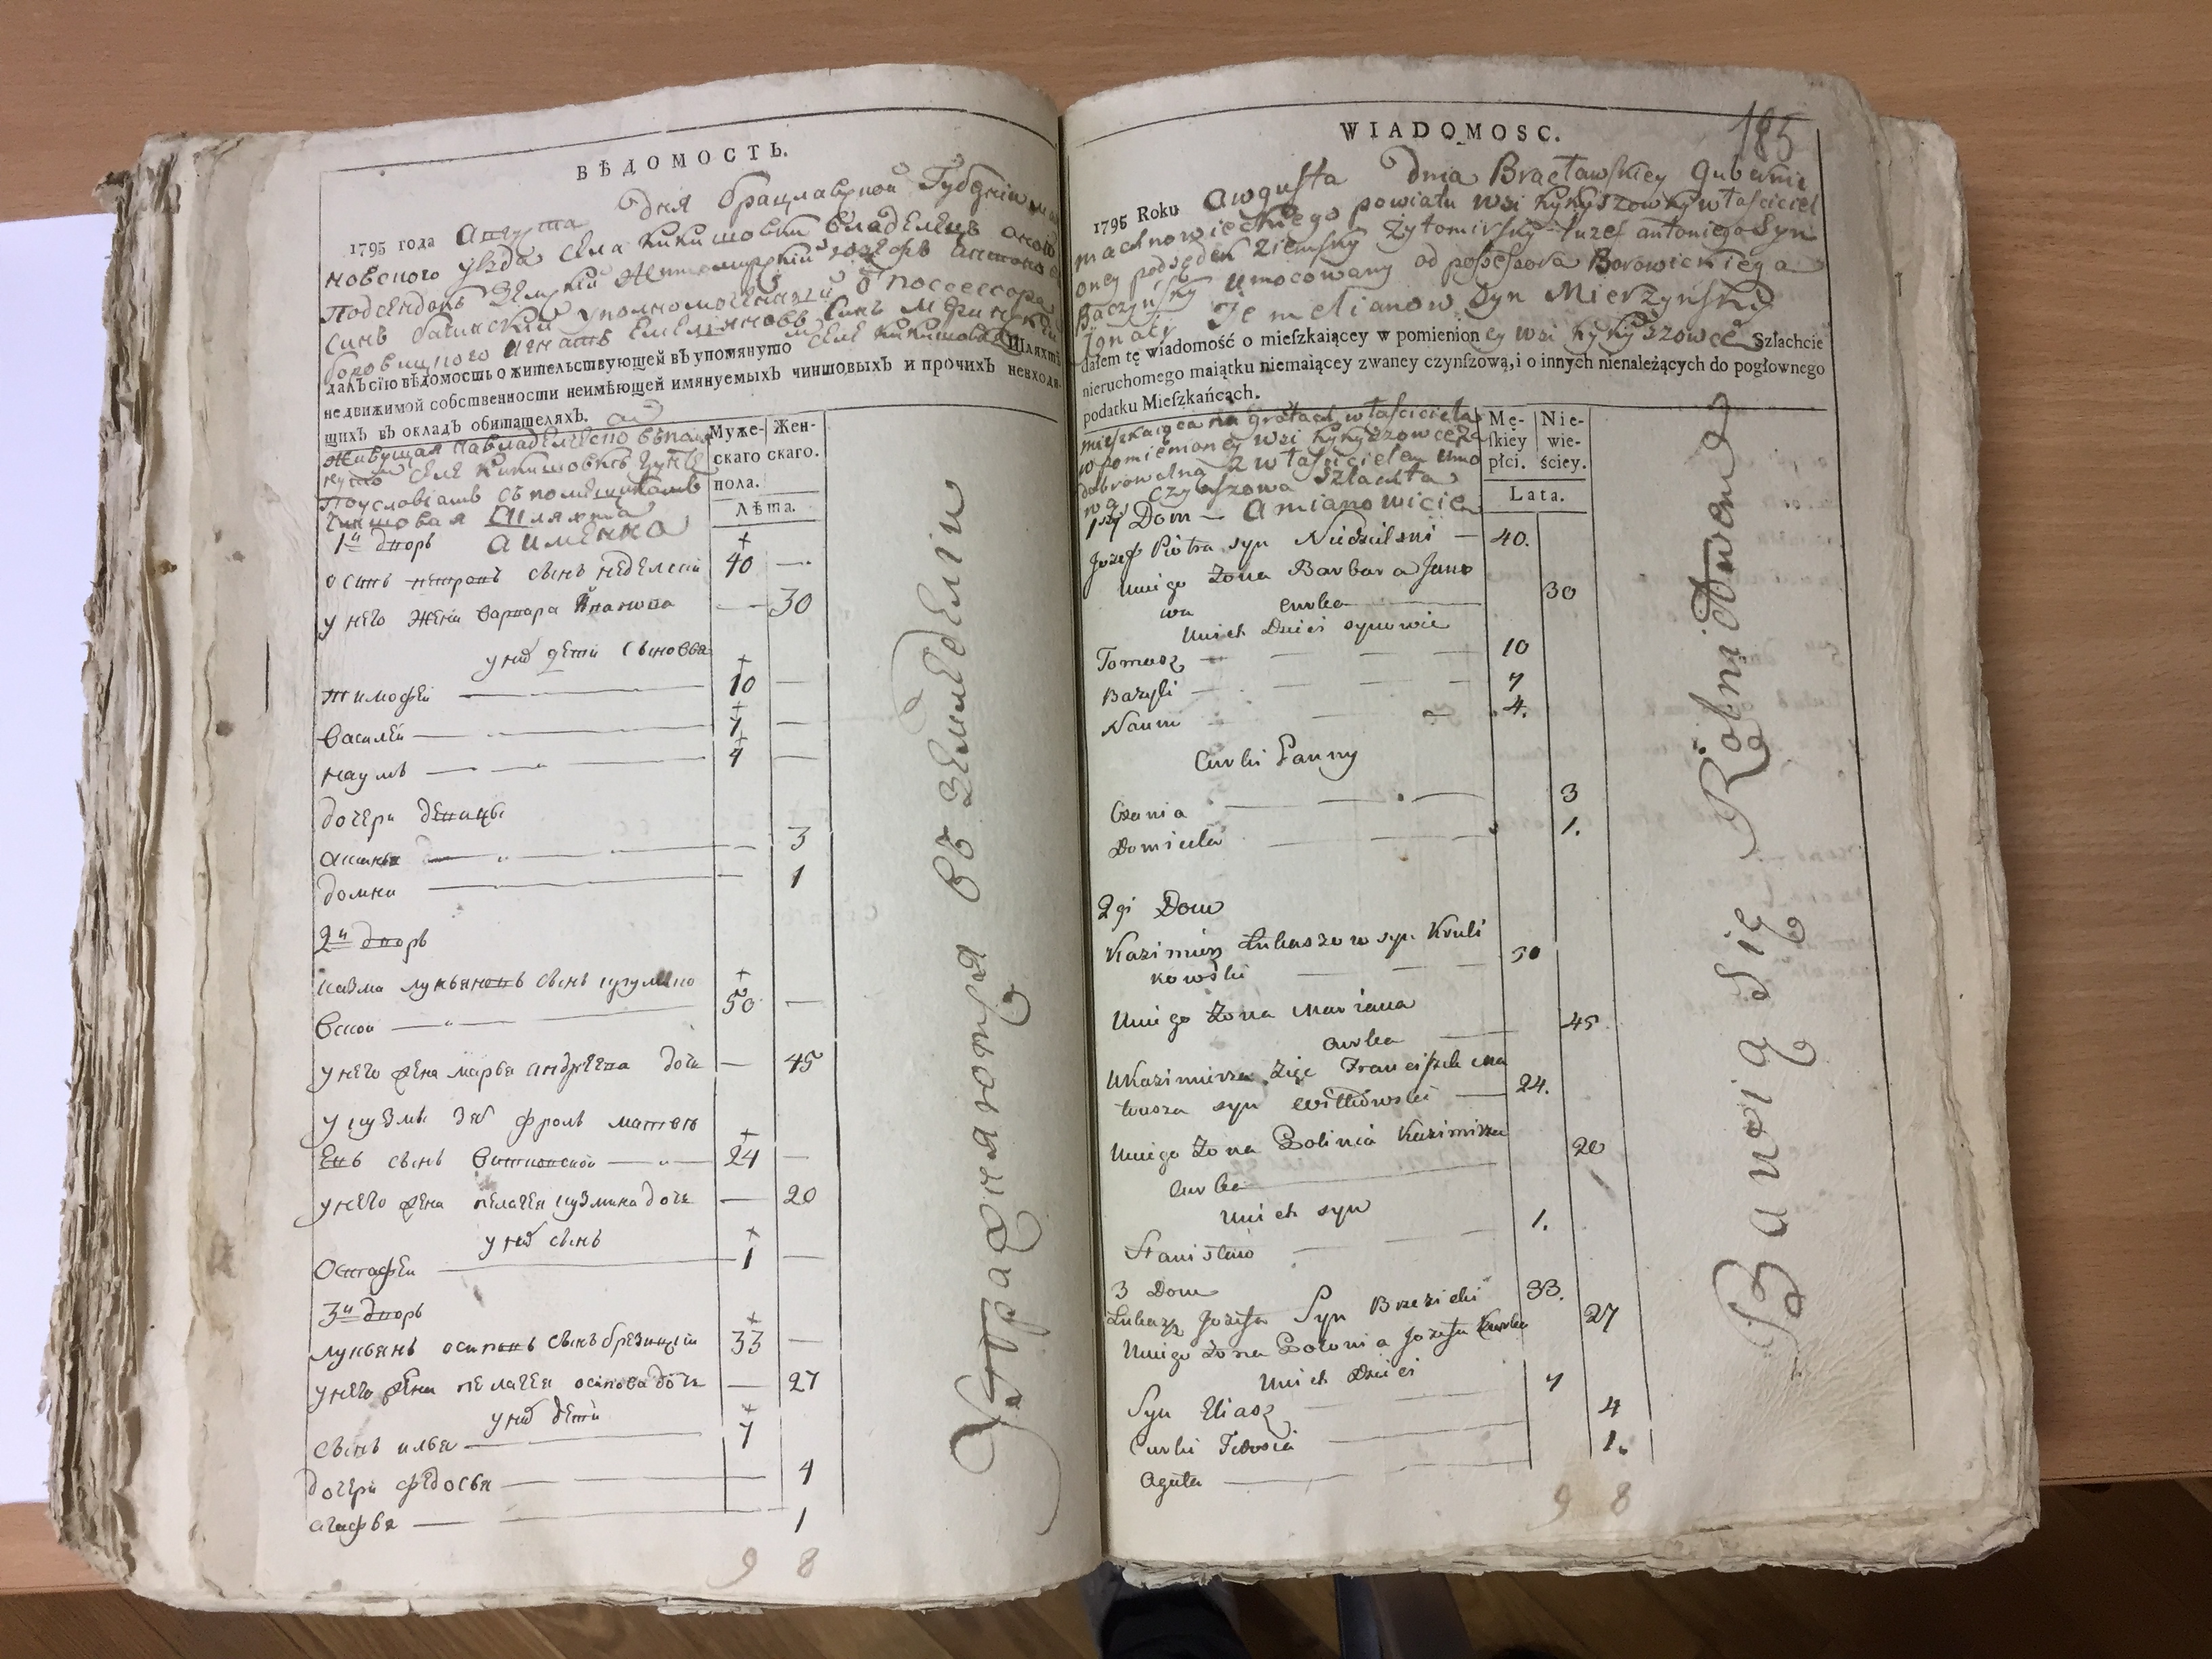 ВѢДОМОСТЬ.
1795 года Августа дня Брацлавской Губернiи мах
новского уѣзда села Кикишовки владѣлецъ оного
Подсендокъ Земскiй Житомирскiй Iозефъ Антоно
синъ Бачинскiй уполномоченный о поссессора
боровицкого Игнатъ Емелiяновъ синъ Мѣринскiй
далъ сiю вѣдомость о жительствующей въ упомянуто селе Кикишовке Шляхтѣ
недвижимой собственности неимѣющей имянуемыхъ чиншовыхъ и прочихъ невходя-
щихъ въ окладъ обитателяхъ.
живущая на владѣлческо
селе Кикишовкѣ
По условiамъ съ помещикамъ
чиншовая Шляхта
Муже- Жен-
скаго скаго.
пола.
Лѣта.
1й дворъ
осипъ петровъ сынъ неделский 40 —
у него жена варвара иванова — 30
у них дети сыновья
тимофей 10 —
василей 7 —
наумъ 4 —
дочери девицы
3
домна — 1
2й дворъ
казма лукьяновъ сынъ крулико
вской 50 —
у него жена марья андреева дочь — 45
у кузмы зять фролъ матвѣ
евъ сынъ витковской 24 —
у него жена пелагея кузмина дочь — 20
у них сынъ
Остафей 1 —
3й дворъ
лукьянъ осиповъ сынъ брезицкiй 33 —
у него жена пелагея осипова дочь — 27
у них дети
сынъ илья 7
дочери федосья — 4
агафья 1
9 8
Упражняются въ земледелiи
WIADOMOSC.
185
1795 Roku Awgusta Dnia Bracławskiey Gubernii
machnowieckiego powiatu wsi Kykyszowky właściciel
oney podsędek ziemsky Żytomirsky Iuzef antoniego Syn
Baczynsky umocowany od possessora Borowickiego
Ignacy Jemelianow Syn Mierzynsky
dałem tę wiadomość o mieszkaiącey w pomienioney wsi Kykyszowce Szlachcie
nieruchomego maiątku niemaiącey zwaney czynszową, i o innych nienależących do pogłownego
podatku Mieszkańcach.
mieszkaiąca na grotach właściciela
w pomienioney wsi Kykyszowce za
dobrowolną z właścicielem umo
wą czynszowa Szlachta
Mę- Nie-
skiey wie-
płci. ściey.
Lata.
1szy Dom — Amianowicie
Jozef Piotra syn Niedzielski — 40.
U niego Żona Barbara Jano
wa Curka 30
U nich Dzieci synowie
Tomasz 10
Bazyli 7
Naum 4.
Curki Panny
3
Domicela 1.
2gi Dom
Kazimierz Łukaszow syn Kruli
kowski 50
U niego Żona Mariana
Curka 45
U Kazimierza Zięc Franciszek Ma
teusza syn Witkowski 24.
U niego Żona Polinia Kazimirza 20
Curka
U nich syn
Stanisław 1.
3 Dom
Łukasz Jozefa Syn Brezicki 33.
U niego Żona Polonia Jozefa Curka 27
U nich Dzieci
Syn Eliasz 7
Curki Fedosia 4
Agata 1.
9 8
Bawią Się Rólnictwem